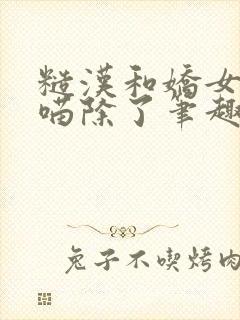 糙漢和嬌女
喵除了筆趣
兔子不喫烤肉